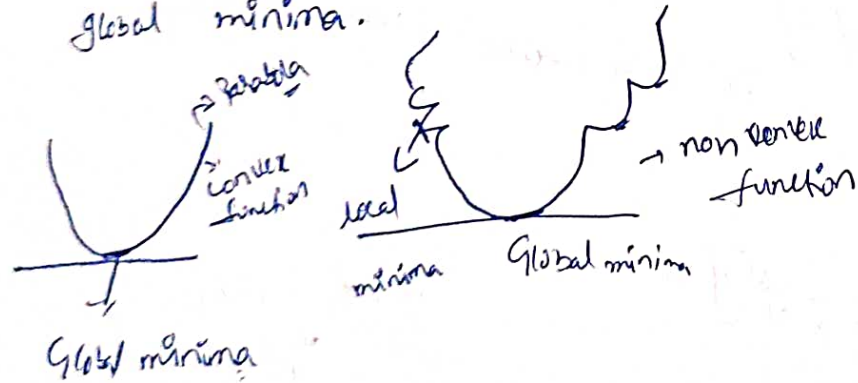 global minima.
→ Parabola
→ convex
function
Global minima
local
minima
Global minima
→ non convex
function